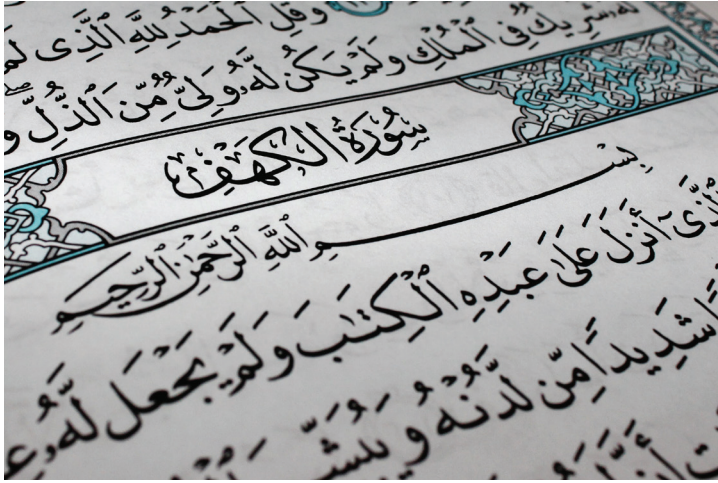 وَقُلِ ٱلْحَمْدُ لِلَّهِ ٱلَّذِى لَمْ
لَّهُۥ شَرِيكٌ فِى ٱلْمُلْكِ وَلَمْ يَكُن لَّهُۥ وَلِىٌّ مِّنَ ٱلذُّلِّ ۖ وَ
سُورَةُ الكَهْفِ
بِسْمِ ٱللَّهِ ٱلرَّحْمَٰنِ ٱلرَّحِيمِ
ٱلَّذِىٓ أَنزَلَ عَلَىٰ عَبْدِهِ ٱلْكِتَٰبَ وَلَمْ يَجْعَل لَّهُۥ
شَدِيدًا مِّن لَّدُنْهُ وَيُبَشِّرَ